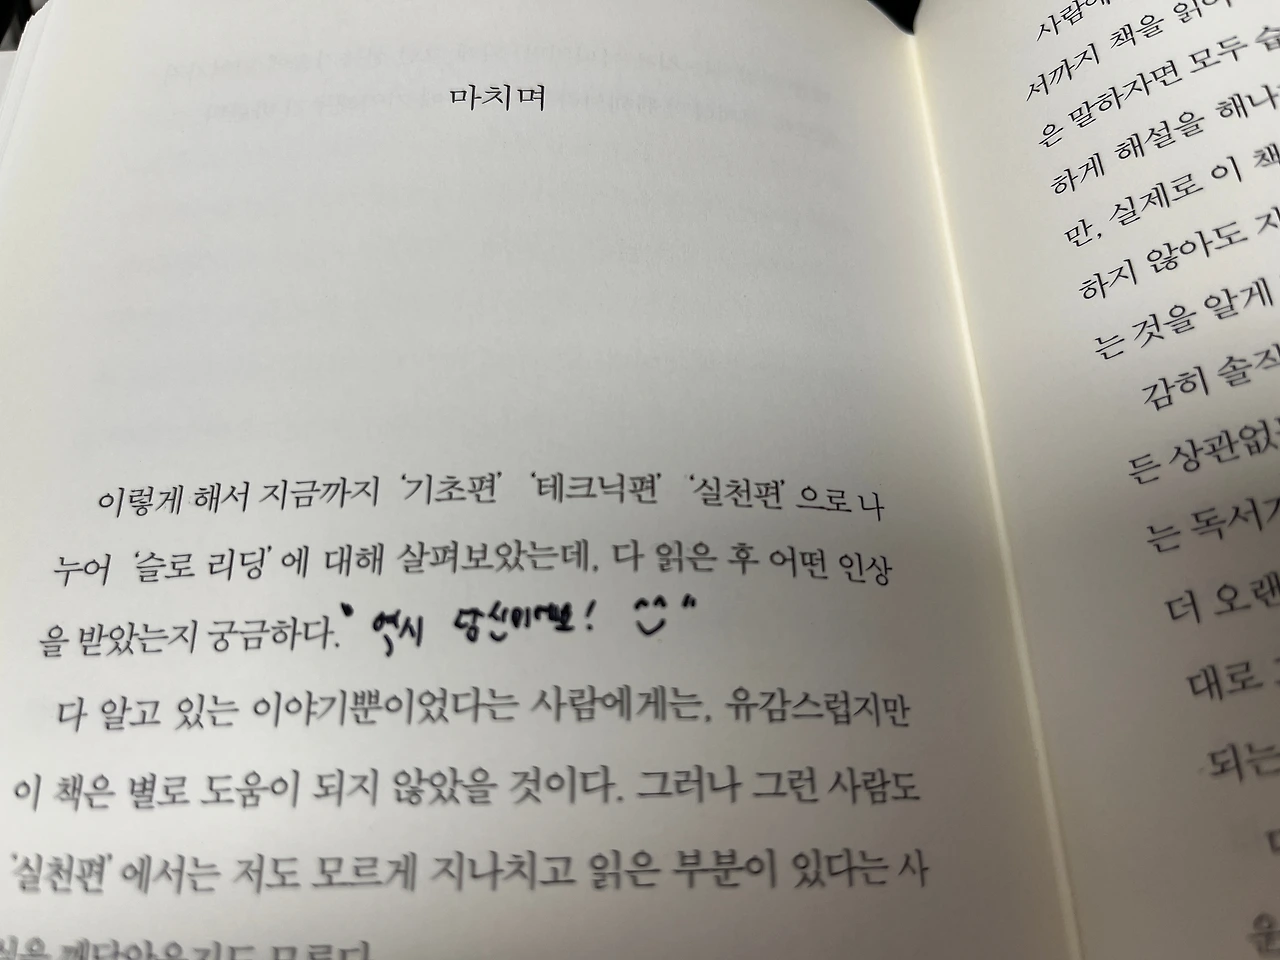 마치며
이렇게 해서 지금까지 ‘기초편’ ‘테크닉편’ ‘실천편’으로 나
누어 ‘슬로 리딩’에 대해 살펴보았는데, 다 읽은 후 어떤 인상
을 받았는지 궁금하다. 역시 당신이에요! ^^"
다 알고 있는 이야기뿐이었다는 사람에게는, 유감스럽지만
이 책은 별로 도움이 되지 않았을 것이다. 그러나 그런 사람도
‘실천편’에서는 저도 모르게 지나치고 읽은 부분이 있다는 사
실을 깨달았을지도 모른다
서까지 책을 읽어
은 말하자면 모두
하게 해설을 해나
만, 실제로 이 책
하지 않아도
는 것을 알게
감히 솔직
든 상관없
는 독서
더 오랜
대로
되는